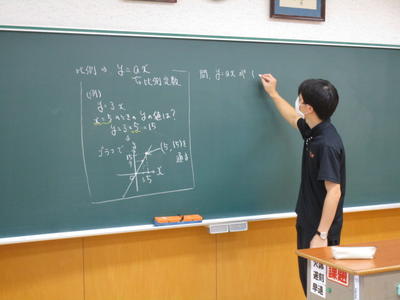 比例 ⇒ y = ax
比例定数
(例)
y = 3x
x = 5のときの yの値は?
y = 3×5 = 15
グラフで
(5, 15)を
通る
y
15
x
0
5
問. y = ax が (
課題